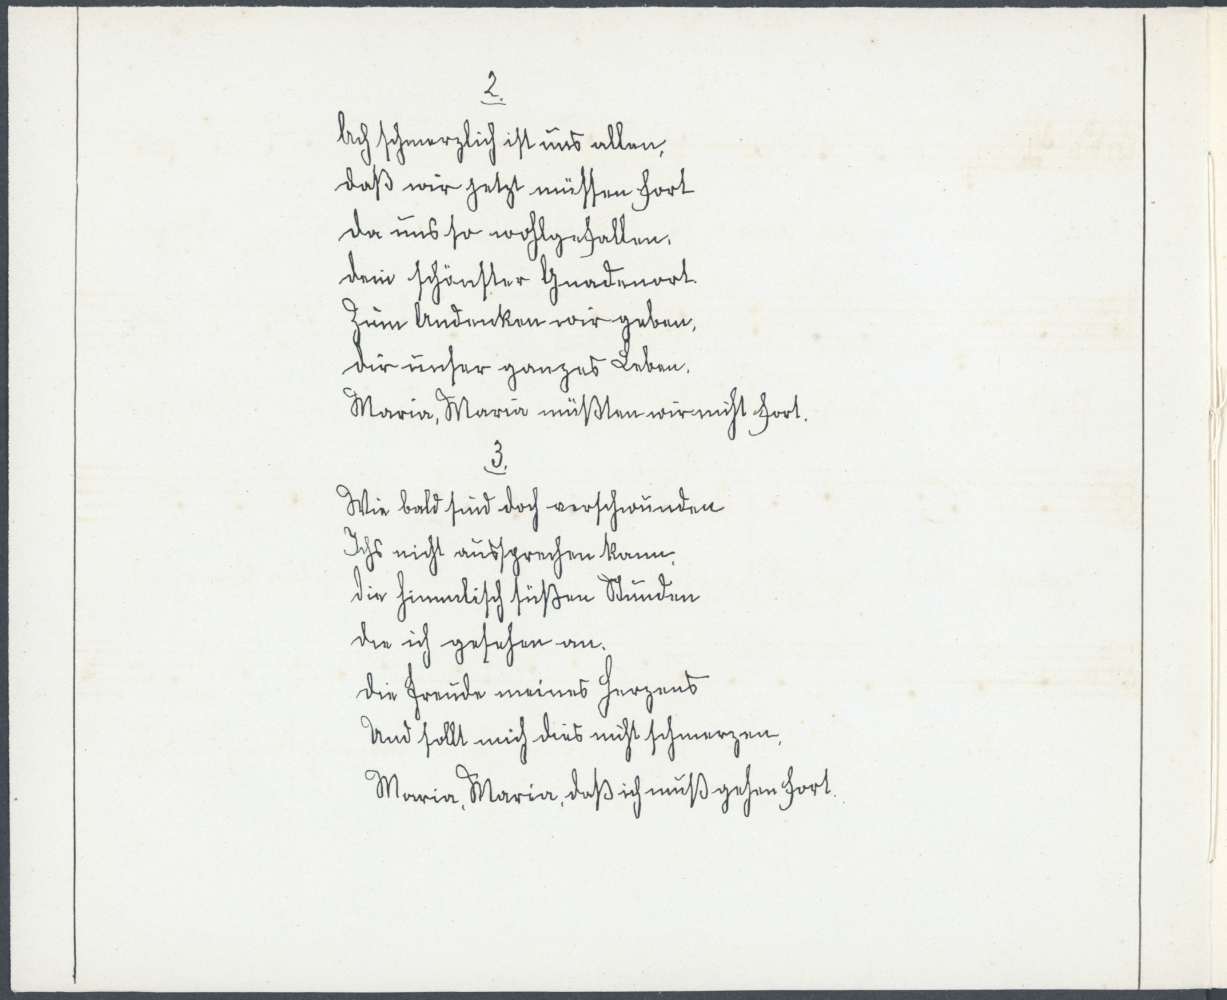 2.
Ach schmerzlich ist uns allen,
daß wir jetzt müssen fort
da uns so wohlgefallen.
dein schönster Gnadenort.
Zum Andenken wir geben,
dir unser ganzes Leben.
Maria, Maria müßten wir nicht fort.
3.
Wie bald sind doch verschwunden
Ichs nicht aussprechen kann,
die himmlisch süßen Stunden
die ich gesehen an.
die Freude meines Herzens
Und sollt mich dies nicht schmerzen,
Maria, Maria, daß ich muß gehen fort.